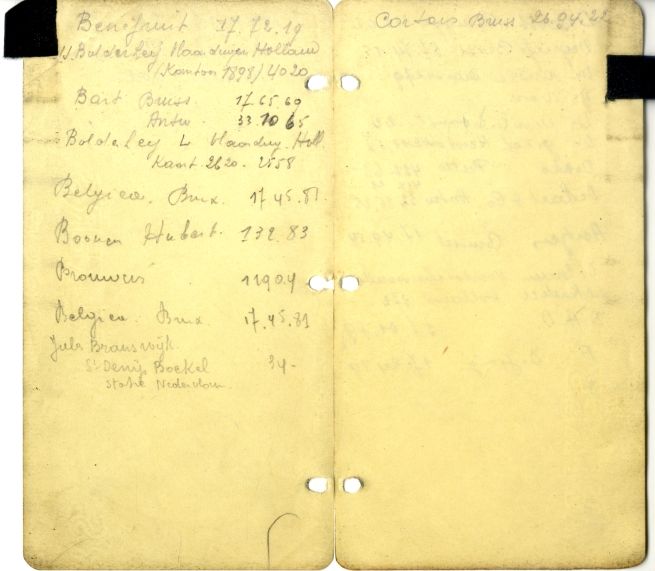 Benefruit 17.72.19
Bolder Leij Vlaardingen Holland
(Kantoor 1898) 4020
Bart Bruss. 17.65.69
Antw. 33.70.65
Bolder Leij L Vlaarding. Holl.
Kant 2620. 2558
Belgica. Brux. 17.45.81.
Boonen Hubert. 132.83
Brouwers 11904
Belgica. Brux. 17.45.81
Jules Branswijk.
St Denijs Boekel 34-
Statie Nederbom.
Cortois Bruss. 26.94.22